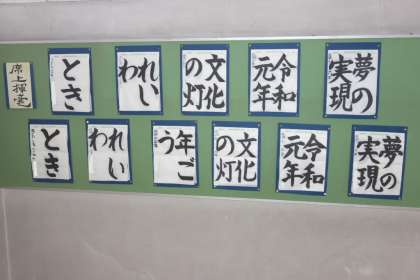 夢の
実現
令和
元年
文化
の灯
れい
われ
とき
席上揮毫
夢の
実現
令和
元年
文化
の灯
年ご
う
れい
わ
とき